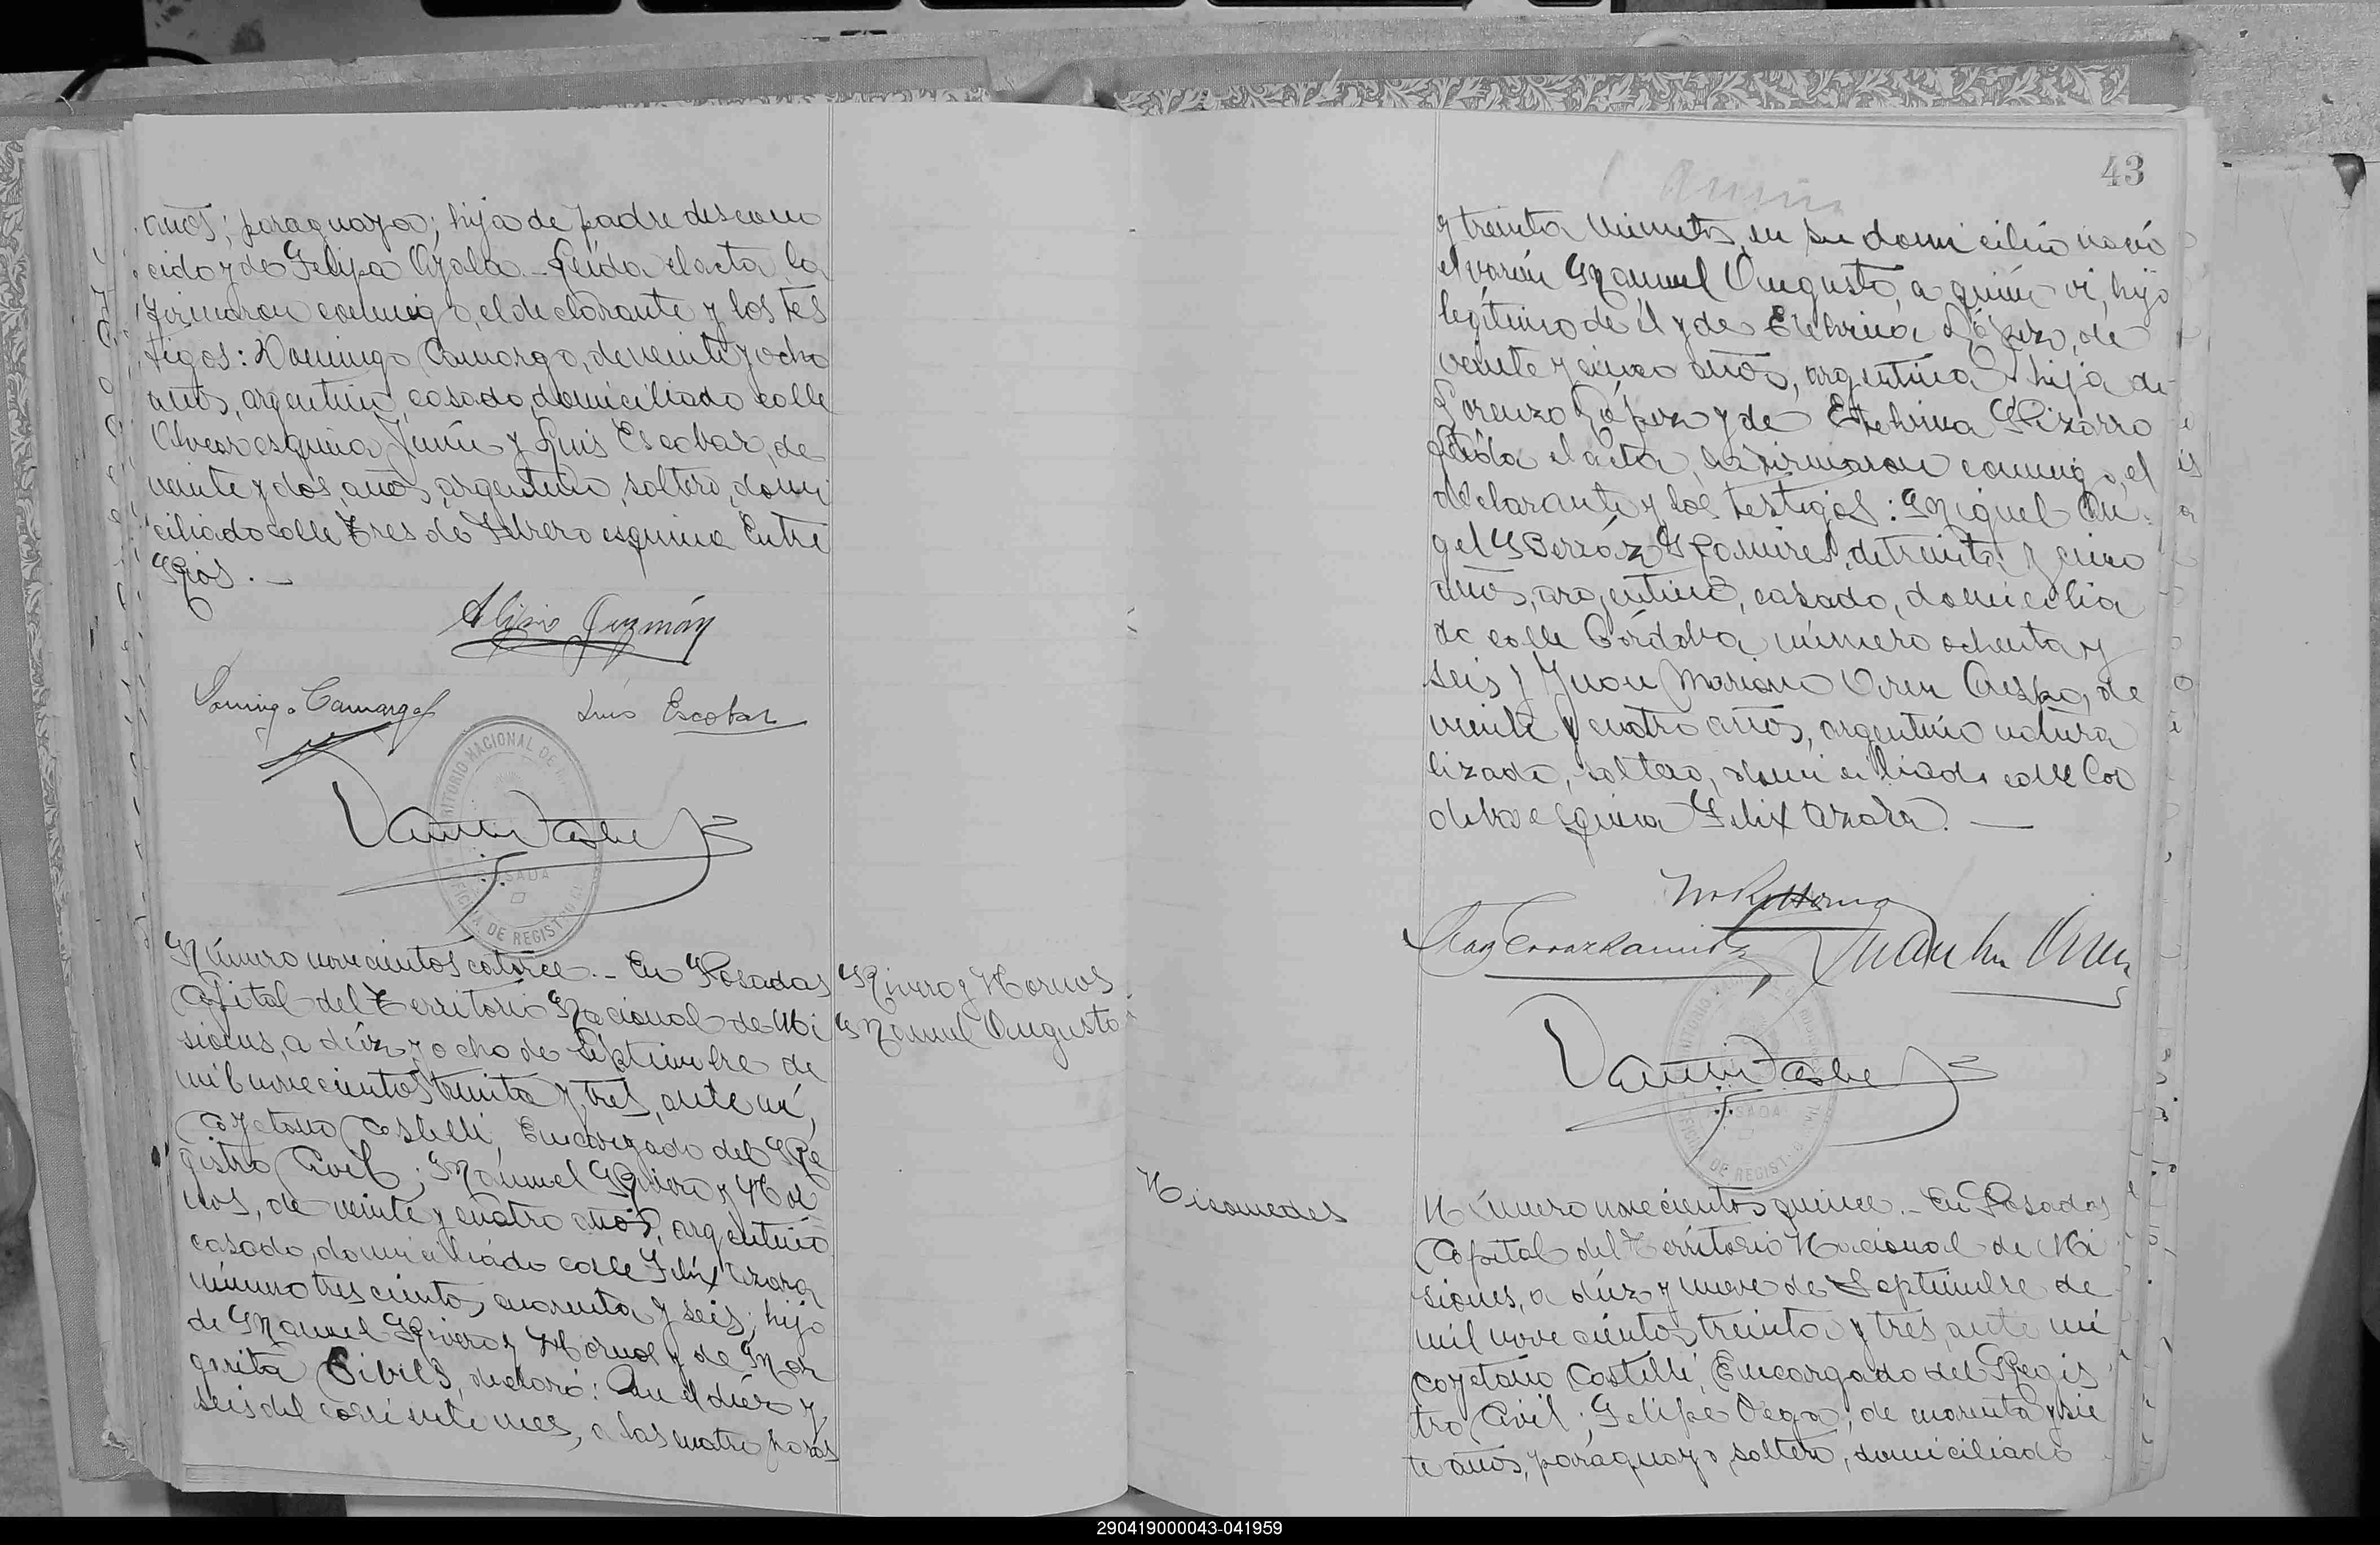 años; paraguaya; hija de padre descono
cido y de Felipa Ayala.- Leída el acta la
firmaron conmigo, el declarante y los tes
tigos: Domingo Camargo, de veinte y ocho
años, argentino, casado, domiciliado calle
Alvear esquina Junín y Luis Escobar, de
veinte y dos años, argentino, soltero, domi
ciliado calle Tres de Febrero esquina Entre
Ríos.-
Guzmán
Domingo Camargo
Luis Escobar
TERRITORIO NACIONAL DE
POSADAS
OFICINA DE REGISTRO CIVIL
Número novecientos catorce.- En Posadas
Capital del Territorio Nacional de Mi
siones, a diez y ocho de Septiembre de
mil novecientos treinta y tres, ante mí,
Cayetano Castelli, Encargado del Re
gistro Civil; Manuel Rivero y Hor
nos, de veinte y cuatro años, argentino
casado, domiciliado calle Felix Azara
número trescientos cuarenta y seis; hijo
de Manuel Rivero y Hornos y de Mar
garita Sibils, declaró: Que el diez y
seis del corriente mes, a las cuatro horas
Rivero y Hornos
Manuel Augusto
43
y treinta minutos, en su domicilio nació
el varón Manuel Augusto, a quien vi, hijo
legítimo de él y de Etelvina López, de
veinte y cinco años, argentina, hija de
Lorenzo López y de Etelvina Pizarro
Leída el acta, la firmaron conmigo, el
declarante y los testigos: Miguel An
gel Ramirez, de treinta y cinco
años, argentino, casado, domicilia
do calle Córdoba número ochenta y
seis y Juan Mariano Oren Crespo, de
veinte y cuatro años, argentino natura
lizado, soltero, domiciliado calle Cor
doba esquina Felix Azara.-
Juan Oren
POSADAS
OFICINA DE REGISTRO CIVIL
Nicomedes
Número novecientos quince.- En Posadas
Capital del Territorio Nacional de Mi
siones, a diez y nueve de Septiembre de
mil novecientos treinta y tres, ante mí
Cayetano Castelli, Encargado del Regis
tro Civil; Felipe Vega, de cuarenta y sie
te años, paraguayo, soltero, domiciliado
290419000043-041959